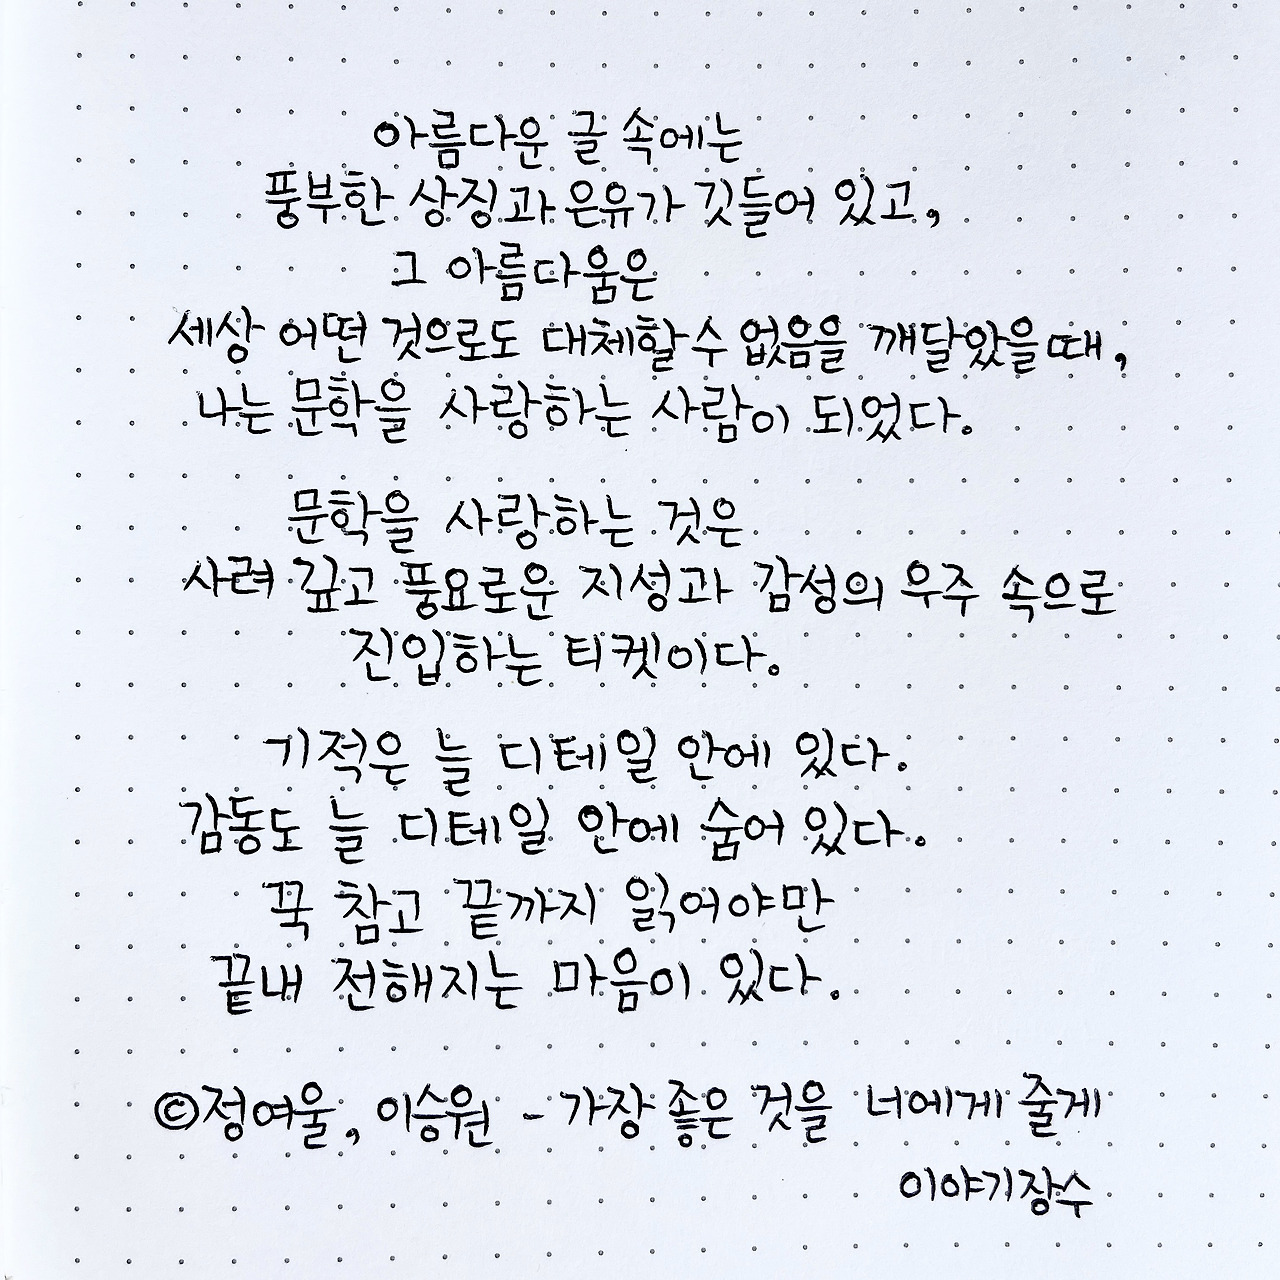 아름다운 글 속에는
풍부한 상징과 은유가 깃들어 있고,
그 아름다움은
세상 어떤 것으로도 대체할 수 없음을 깨달았을 때,
나는 문학을 사랑하는 사람이 되었다.
문학을 사랑하는 것은
사려 깊고 풍요로운 지성과 감성의 우주 속으로
진입하는 티켓이다.
기적은 늘 디테일 안에 있다.
감동도 늘 디테일 안에 숨어 있다.
꾹 참고 끝까지 읽어야만
끝내 전해지는 마음이 있다.
©정여울, 이승원 - 가장 좋은 것을 너에게 줄게
이야기장수